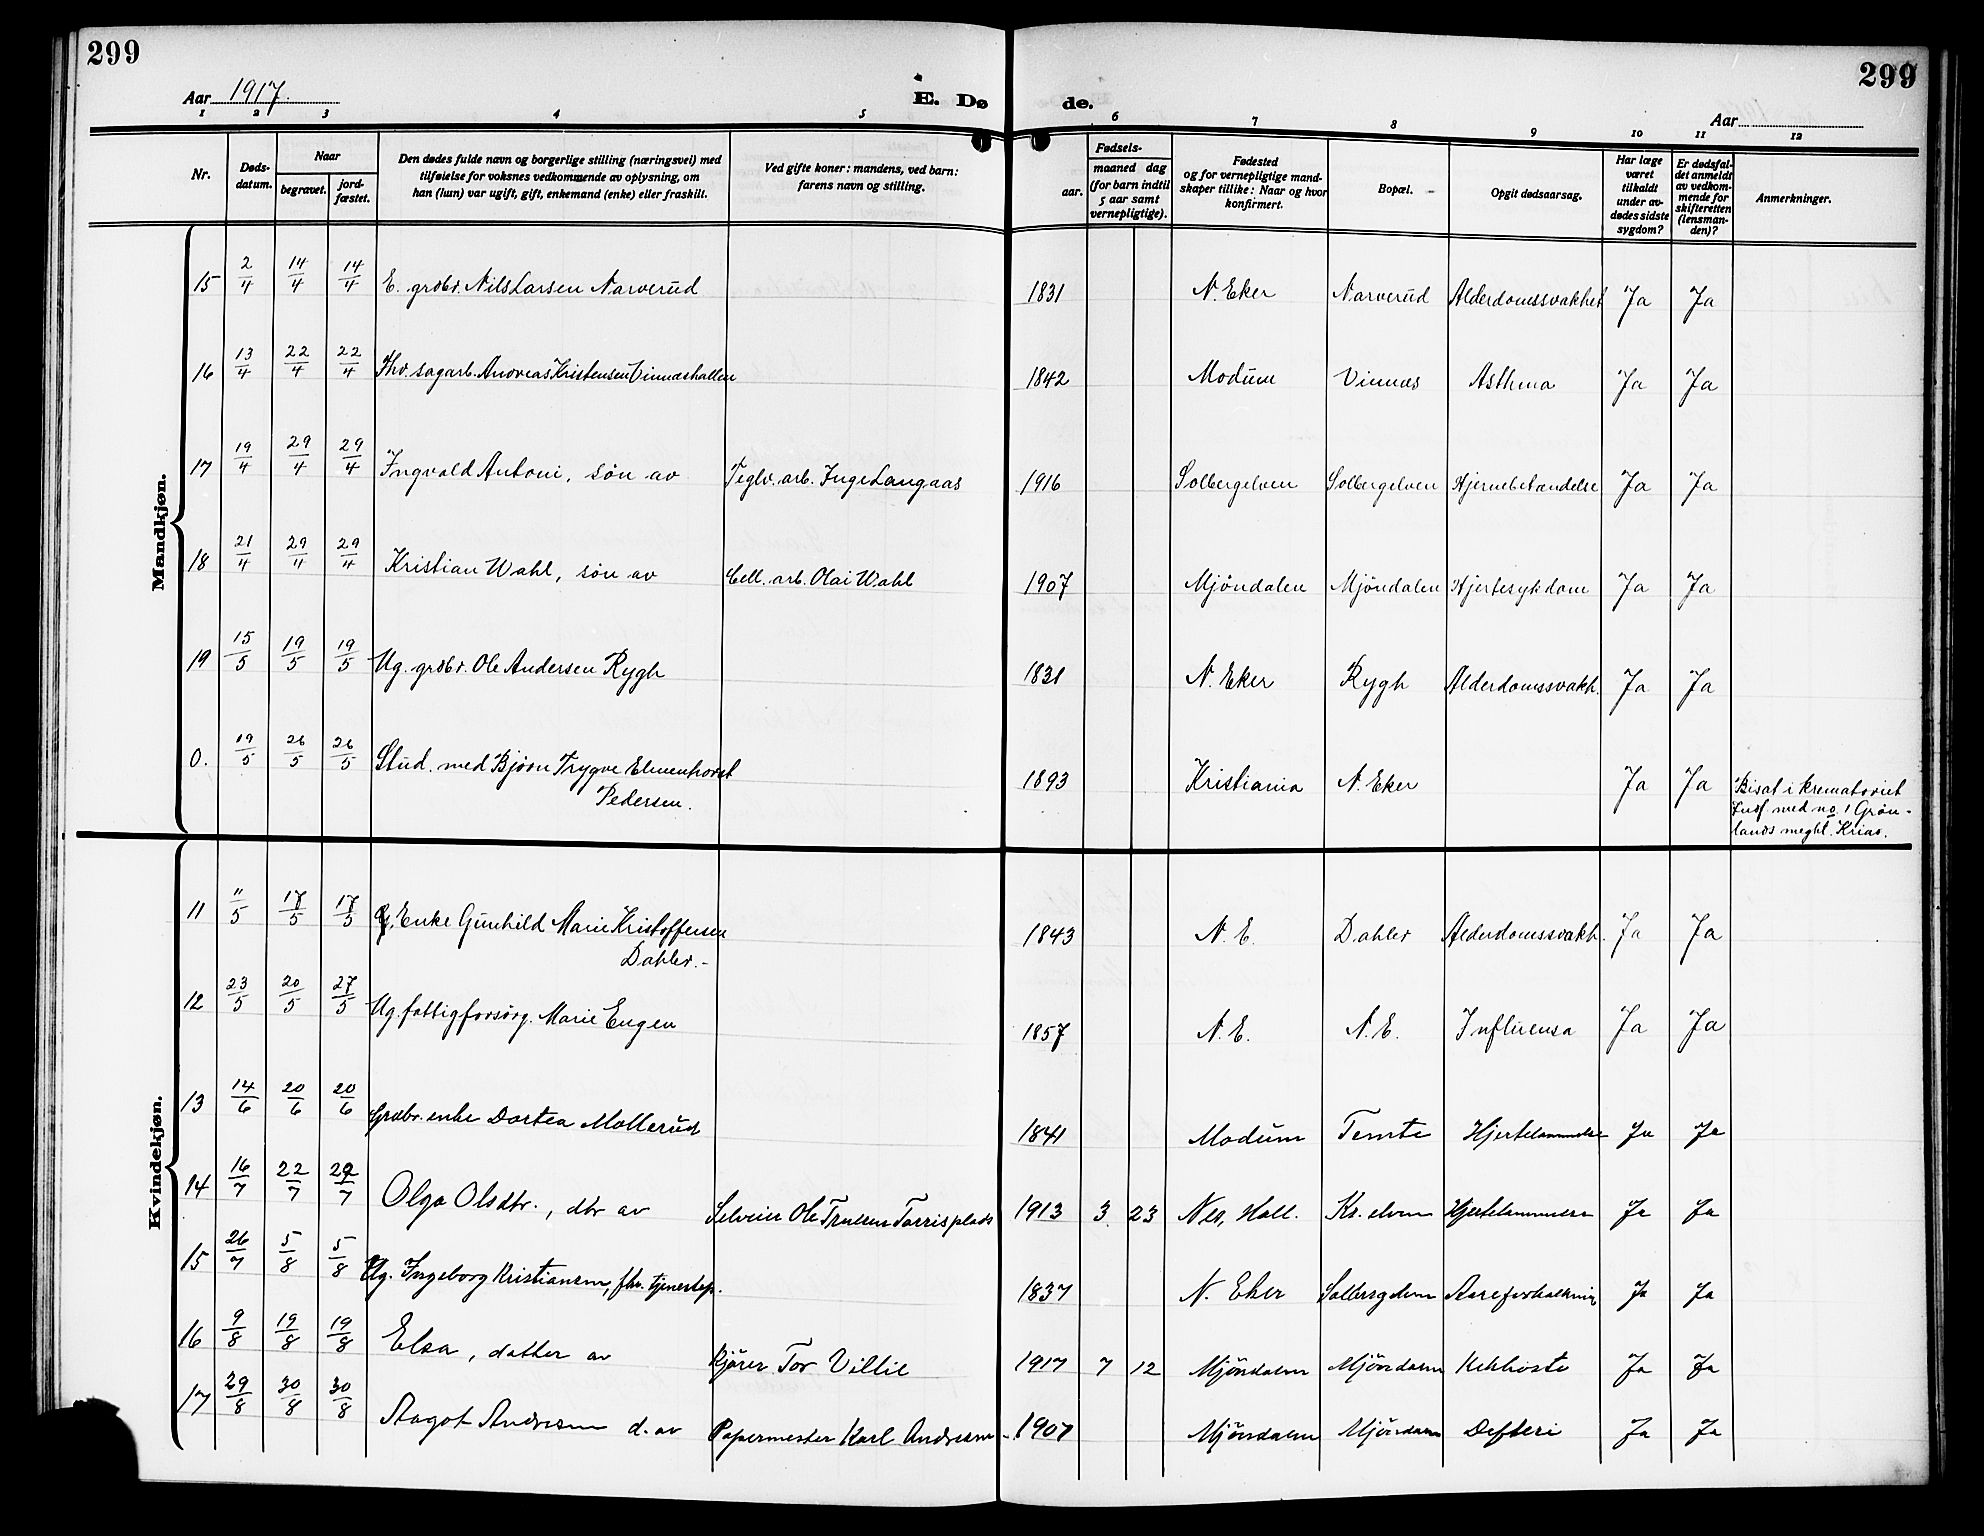 299
299
Aar 1917.
E. Dø de.
Aar
1 2 3 4 5 6 7 8 9 10 11 12
Nr.
Døds-datum.
Naar
begravet.
jord-fæstet.
Den dødes fulde navn og borgerlige stilling (næringsvei) med
tilføielse for voksnes vedkommende av oplysning, om
han (hun) var ugift, gift, enkemand (enke) eller fraskilt.
Ved gifte koner: mandens, ved barn:
farens navn og stilling.
Fødsels-
aar.
maaned dag
(for barn indtil
5 aar samt
vernepligtige).
Fødested
og for vernepligtige mand-
skaper tillike: Naar og hvor
konfirmert.
Bopæl.
Opgit dødsaarsag.
Har læge
været
tilkaldt
under av-
dødes sidste
sygdom?
Er dødsfal-
det anmeldt
av vedkom-
mende for
skifteretten
(lensman-
den)?
Anmerkninger.
Mandkjøn.
15 2/4 14/4 14/4 E. grdbr. Nils Larsen Narverud 1831 N. Eker Narverud Alderdomssvakhet Ja Ja
16 13/4 22/4 22/4 Fhv. sagarb. Andreas Kristensen Vinnæshallen 1842 Modum Vinnæs Asthma Ja Ja
17 19/4 29/4 29/4 Ingvald Antoni, søn av Teglv. arb. Inge Langaas 1916 Solbergelven Solbergelven Hjernebetændelse Ja Ja
18 21/4 29/4 29/4 Kristian Wahl, søn av Cell. arb. Olai Wahl 1907 Mjöndalen Mjöndalen Hjertesykdom Ja Ja
19 15/5 19/5 19/5 Ug. grdbr. Ole Andersen Rygh 1831 N. Eker Rygh Alderdomssvakh. Ja Ja
0. 19/5 26/5 26/5 Stud. med Bjørn Trygve Elmenhorst
Pedersen. 1893 Kristiania N. Eker Ja Ja Bisat i krematoriet
Indf. med no 1 Grøn-
lands meght. Kria.
Kvindekjøn.
11 11/5 17/5 17/5 Enke Gunhild Marie Kristoffersen
Dahler.- 1843 N. E. Dahler Alderdomssvakh. Ja Ja
12 23/5 20/5 27/5 Ug. fattigforsörg. Marie Engen 1857 N. E. N. E. Influensa Ja Ja
13 14/6 20/6 20/6 Grdbr. enke Dortea Mollerud 1841 Modum Temte Hjertelammelse Ja Ja
14 16/7 22/7 22/7 Olga Olsdtr., dtr av Selveier Ole Trulsen Torrisplads 1913 3 23 Nes, Hall. Kr. elven Hjertelammelse Ja Ja
15 26/7 5/8 5/8 Ug. Ingeborg Kristiansen, fhv. tjenestep. 1837 N. Eker Solbergelven Aareforkalkning Ja Ja
16 9/8 19/8 19/8 Elsa, datter av kjörer Tor Villie 1917 7 12 Mjöndalen Mjöndalen Kikhoste Ja Ja
17 29/8 30/8 30/8 Aagot Andresen d. av Papermester Karl Andresen 1907 Mjöndalen Mjöndalen Defteri Ja Ja